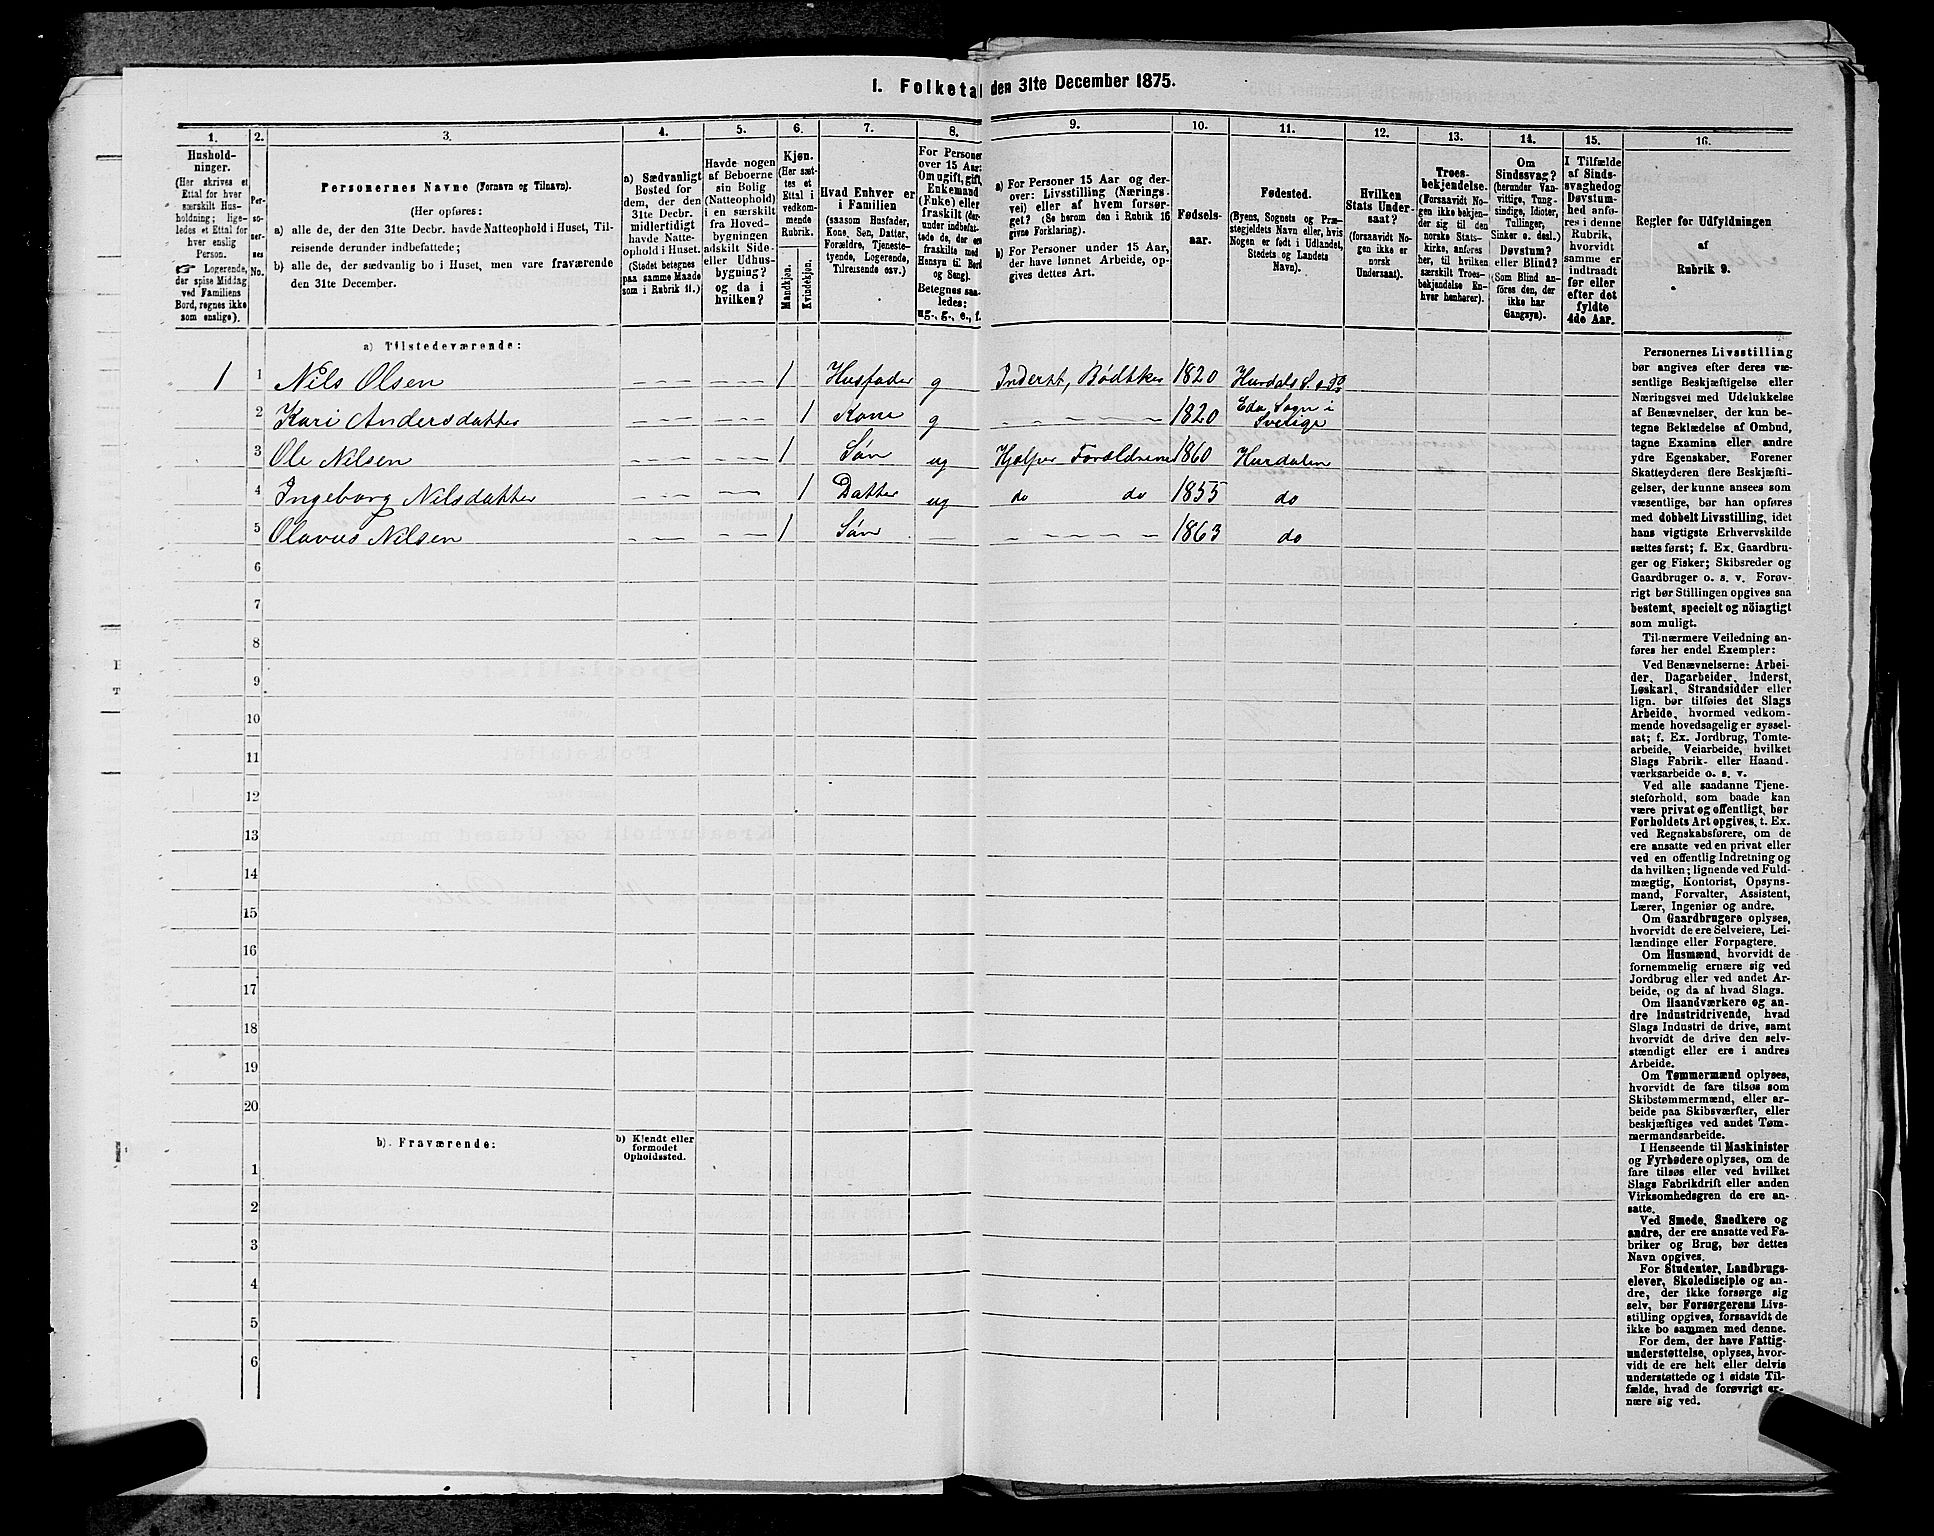 1. Folketal den 31te December 1875.
1.
2.
3.
4.
5.
6.
7.
8.
9.
10.
11.
12.
13.
14.
15.
16.
Husholdninger.
(Her skrives et
Ettal for hver
særskilt Husholdning;
ligeledes et Ettal for
hver enslig
Person.
☞ Logerende,
der spise Middag
ved Familiens
Bord, regnes ikke
som enslige).
Personernes No.
Personernes Navne (Fornavn og Tilnavn).
(Her opføres:
a) alle de, der den 31te Decbr. havde Natteophold i Huset, Tilreisende derunder indbefattede;
b) alle de, der sædvanlig bo i Huset, men vare fraværende
den 31te December.
a) Sædvanligt
Bosted for
dem, der den
31te Decbr.
midlertidigt
havde Natteophold i Huset.
(Stedet betegnes
paa samme Maade
som i Rubrik 11.)
Havde nogen
af Beboerne
sin Bolig
(Natteophold)
i en særskilt
fra Hovedbygningen
adskilt Side- eller Udhusbygning?
og da i
hvilken?
Kjøn.
(Her sættes et
Ettal i
vedkommende
Rubrik.
Mandkjøn.
Kvindekjøn.
Hvad Enhver er
i Familien
(saasom Husfader,
Kone, Søn, Datter,
Forældre, Tjenestetyende, Logerende,
Tilreisende osv.)
For Personer
over 15 Aar:
Om ugift, gift,
Enkemand
(Enke) eller
fraskilt (derunder indbefattede de, der ere
fraskilte med
Hensyn til Bord
og Seng).
Betegnes saaledes:
ug., g., e., f.
a) For Personer 15 Aar og derover: Livsstilling (Næringsvei) eller af hvem forsørget? (Se herom den i Rubrik 16
givne Forklaring).
b) For Personer under 15 Aar,
der have lønnet Arbeide, opgives dettes Art.
Fødselsaar.
Fødested.
(Byens, Sognets og Præstegjeldets Navn eller, hvis
Nogen er født i Udlandet,
Stedets og Landets
Navn).
Hvilken
Stats Undersaat?
(forsaavidt Nogen ikke er
norsk
Undersaat).
Troesbekjendelse.
(Forsaavidt Nogen ikke bekjender sig til den
norske Statskirke, anføres
her, til hvilken
særskilt Troesbekjendelse Enhver henhører).
Om
Sindssvag?
(herunder Vanvittige, Tungsindige, Idioter,
Tullinger,
Sinker o. desl.)
Døvstum?
eller Blind?
(Som Blind anføres den, der
ikke har
Gangsyn).
I Tilfælde
af Sindssvaghed og
Døvstumhed anføres i denne
Rubrik,
hvorvidt
samme er
indtraadt
før eller
efter det
fyldte
4de Aar.
Regler for Udfyldningen
af
Rubrik 9.
a) Tilstedeværende:
1 1 Nils Olsen 1 Husfader g Inderst, Bødtker 1820 Hurdals S.
2 Kari Andersdatter 1 Kone g 1820 Eda Sogn i Sverige
3 Ole Nilsen 1 Søn ug Hjælper Forældrene 1860 Hurdalen
4 Ingeborg Nilsdatter 1 Datter ug do do 1855 do
5 Olavus Nilsen 1 Søn 1863 do
6
7
8
9
10
11
12
13
14
15
16
17
18
19
20
b) Fraværende:
b) Kjendt eller
formodet
Opholdssted.
1
2
3
4
5
6
Personernes Livsstilling
bør angives efter deres væsentlige Beskjæftigelse eller
Næringsvei med Udelukkelse
af Benævnelser, der kun betegne Beklædelse af Ombud,
tagne Examina eller andre
ydre Egenskaber. Forener
Skatteyderen flere Beskjæftigelser, der kunne ansees som
væsentlige, bør han opføres
med dobbelt Livsstilling, idet
hans vigtigste Erhvervskilde
sættes først; f. Ex. Gaardbruger og Fisker; Skibsreder og
Gaardbruger o. s. v. Forøvrigt bør Stillingen opgives saa
bestemt, specielt og nöiagtigt
som muligt.
Til nærmere Veiledning anføres her endel Exempler:
Ved Benævnelserne: Arbeider, Dagarbeider, Inderst,
Løskarl, Strandsidder eller
lign. bør tilføies det Slags
Arbeide, hvormed vedkommende hovedsagelig er sysselsat; f. Ex. Jordbrug, Tomtearbeide, Veiarbeide, hvilket
Slags Fabrik- eller Haandværksarbeide o. s. v.
Ved alle saadanne Tjenesteforhold, som baade kan
være privat og offentligt, bør
Forholdets Art opgives, t. Ex.
ved Regnskabsførere, om de
ere ansatte ved en privat eller
ved en offentlig Indretning og
da hvilken; lignende ved Fuldmægtig, Kontorist, Opsynsmand, Forvalter, Assistent,
Lærer, Ingeniør og andre.
Om Gaardbrugere oplyses,
hvorvidt de ere Selveiere, Leilændinge eller Forpagtere.
Om Husmænd, hvorvidt de
fornemmelig ernære sig ved
Jordbrug eller ved andet Arbeide, og da af hvad Slags.
Om Haandværkere og andre Industridrivende, hvad
Slags Industri de drive, samt
hvorvidt de drive den selvstændigt eller ere i andres
Arbeide.
Om Tømmermænd oplyses,
hvorvidt de fare tilsøs som
Skibstømmermænd, eller arbeide paa Skibsværfter, eller
beskjæftiges ved andet Tømmermandsarbeide.
I Henseende til Maskinister
og Fyrbødere oplyses, om de
fare tilsøs eller ved hvilket
Slags Fabrikdrift eller anden
Virksomhedsgren de ere ansatte.
Ved Smede, Snedkere og
andre, der ere ansatte ved Fabriker og Brug, bør dettes
Navn opgives.
For Studenter, Landbrugselever, Skoledisciple og andre, der ikke forsørge sig
selv, bør Forsørgerens Livsstilling opgives, forsaavidt de
ikke bo sammen med denne.
For dem, der have Fattigunderstøttelse, oplyses, hvorvidt de ere helt eller delvis
understøttede og i sidste Tilfælde, hvad de forøvrigt ernære sig ved.